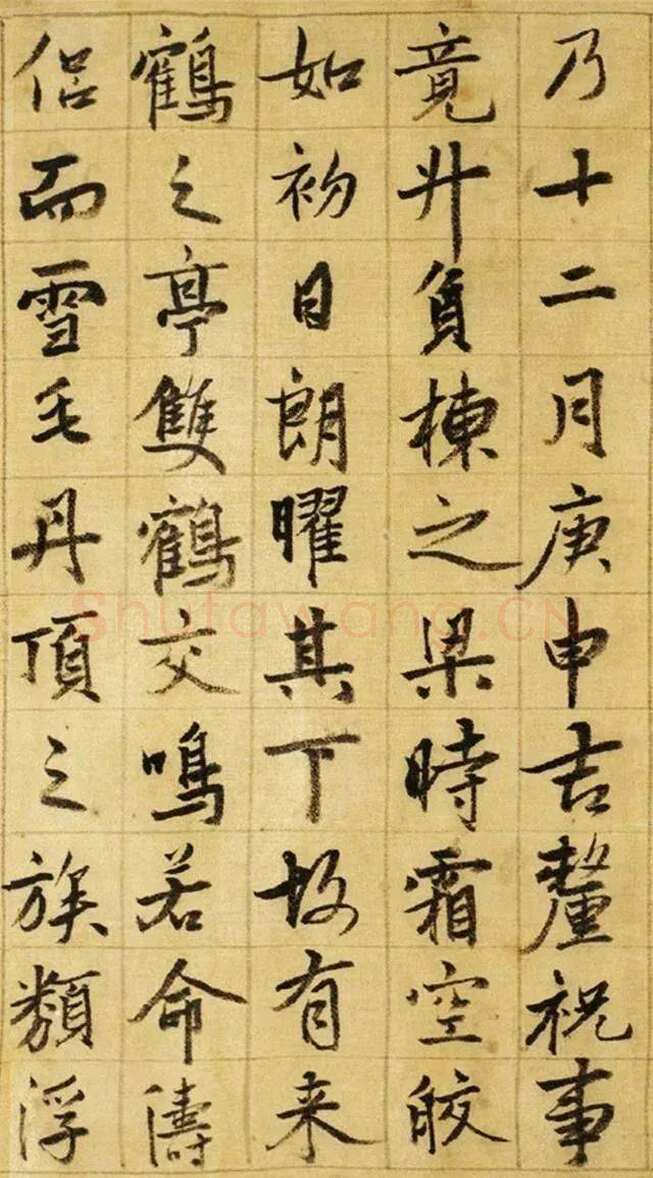 乃十二月庚申吉釐祝事
竟升負棟之梁時霜空皎
如初日朗曜其下故有来
鶴之亭雙鶴交鳴若命儔
侣而雪毛丹頂之族類浮
shufawang.CN